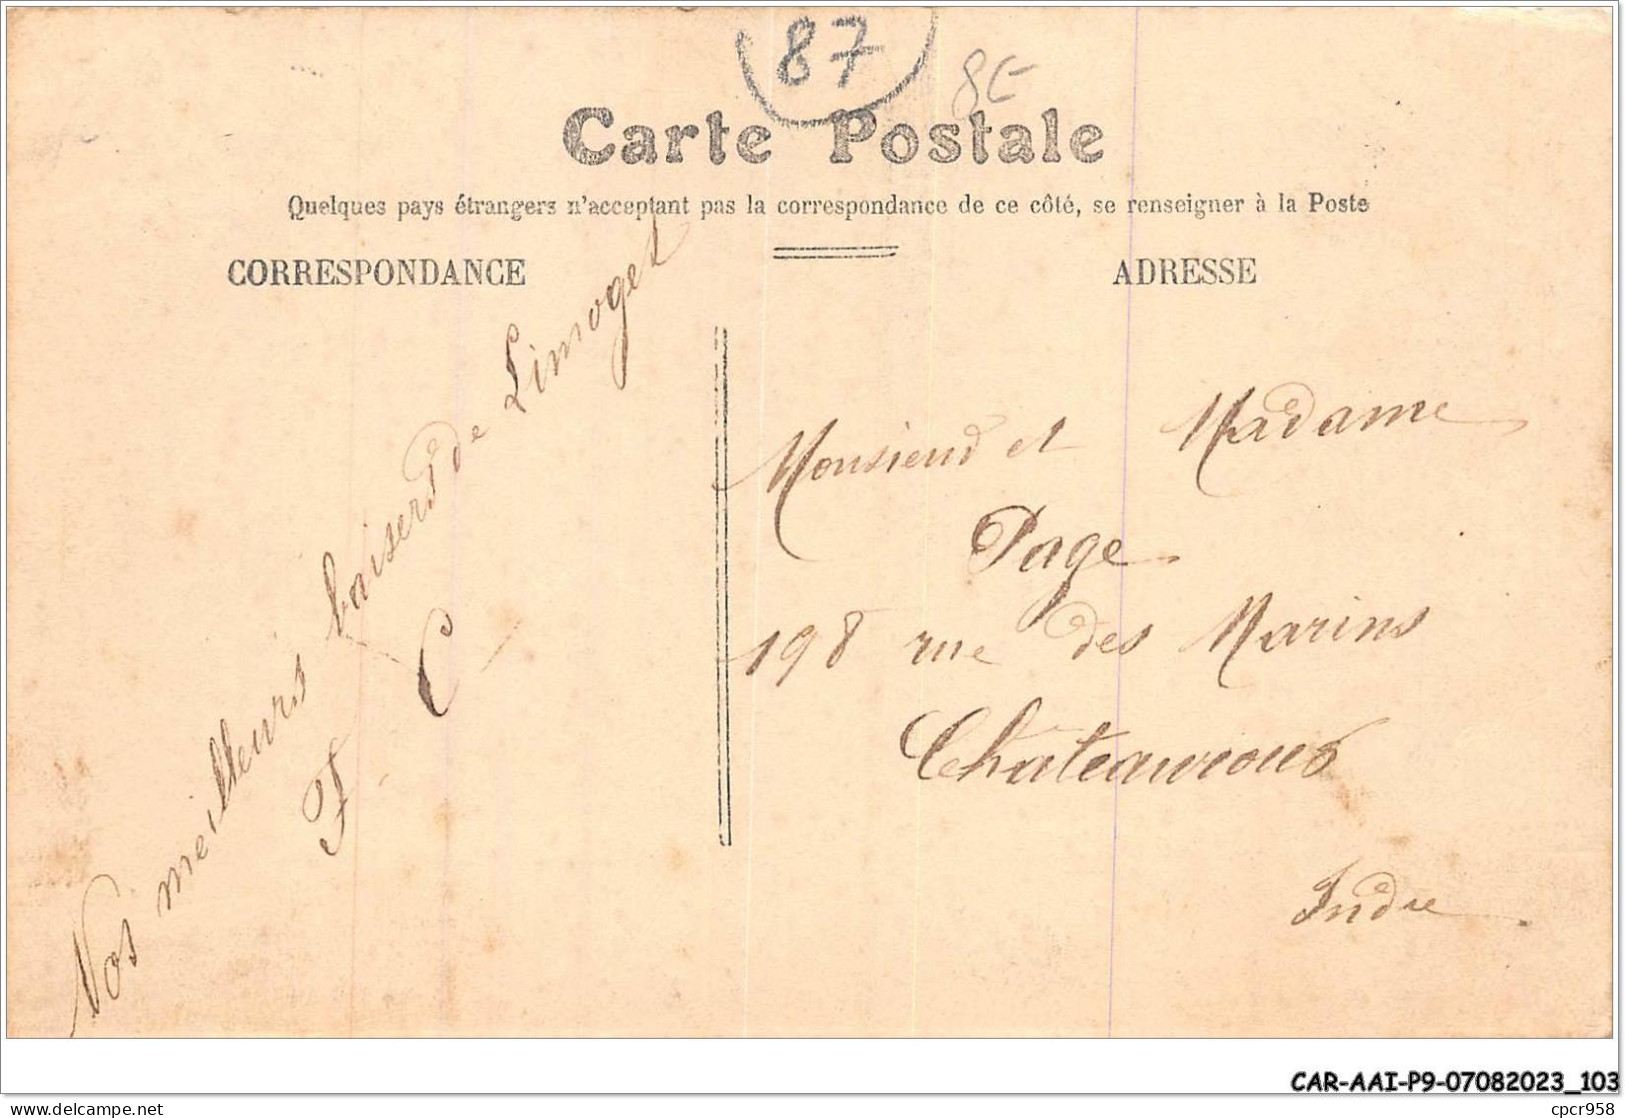 87
8€
Carte Postale
Quelques pays étrangers n'acceptant pas la correspondance de ce côté, se renseigner à la Poste
CORRESPONDANCE
ADRESSE
Nos meilleurs baisers de Limoges
F C
Monsieur et Madame
Page
198 rue des Marins
Châteauroux
Indre
CAR-AAI-P9-07082023_103
delcampe.net
cpcr958